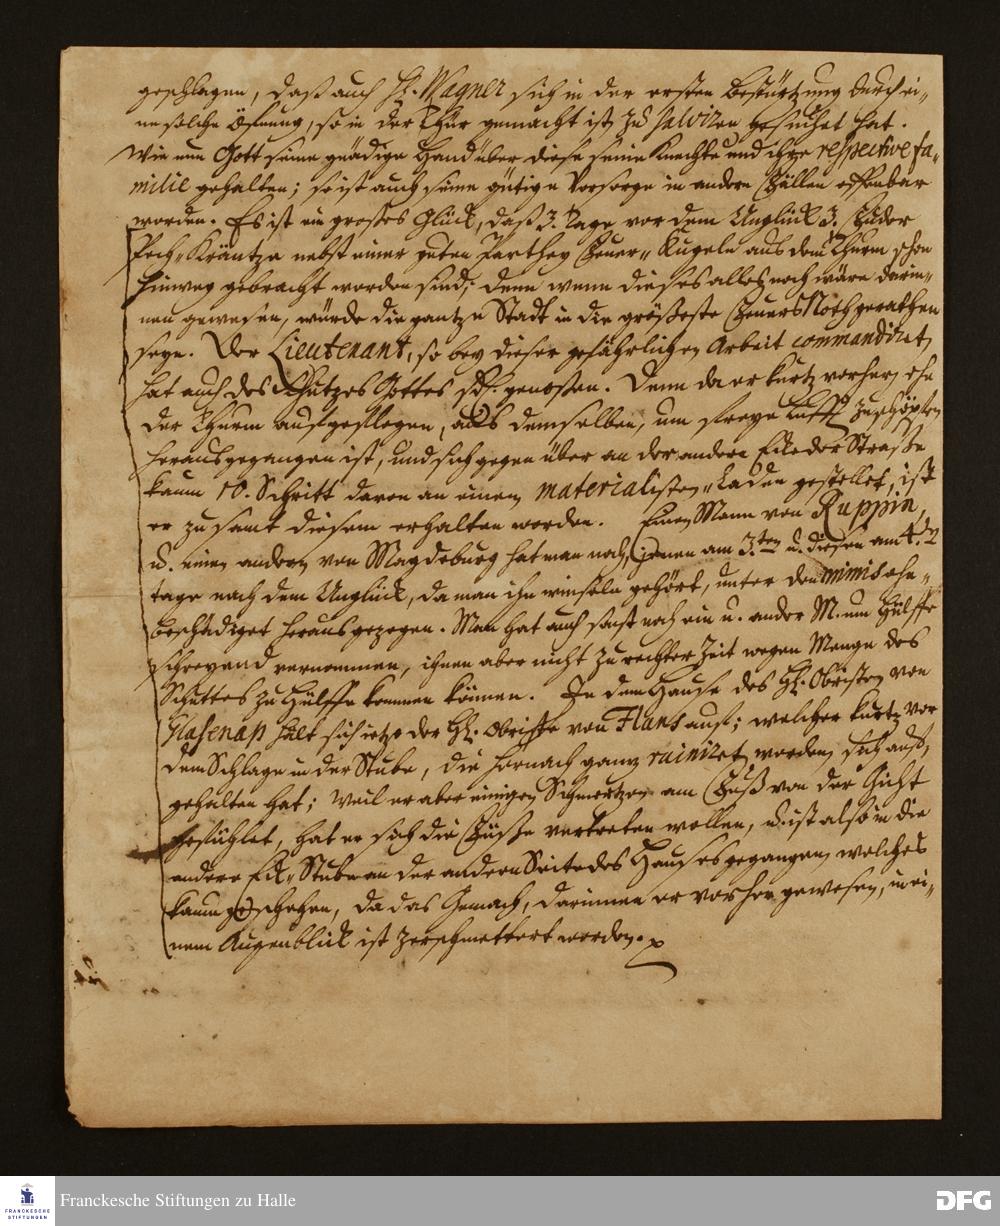 geschlagen, daß auch H. Wagner sich in der ersten Bestürtzung durch ei-
ne solche Öfnung, so in der Thür gemacht ist, zu salviren gesuchet hat.
Wie nun Gott seine gnädige Hand über diese seine Knechte und ihre respective fa-
milie gehalten; so ist auch seine gütige Vorsorge in andern Fällen offenbar
worden. Es ist ein grosses Glück, daß 3. Tage vor dem Unglück 3. Fuder
Pech-Kräntze nebst einer guten Parthey Feuer-Kugeln aus dem Thurm schon
hinweg gebracht worden sind; denn wenn dieses alles noch wäre darin-
nen gewesen, würde die gantze Stadt in die größeste Feuers Noth gerathen
seyn. Der Lieutenant, so bey dieser gefährlichen Arbeit commandiret,
hat auch des Schutzes Gottes genossen. Denn da er kurtz vorher, ehe
der Thurm aufgeflogen, aus demselben, um freye Lufft zu schöpfen,
herausgegangen ist, und sich gegen über an der andern Ecke der Straße
kaum 10. Schritt davon an einen materialisten-Laden gestellet, ist
er zusamt diesem erhalten worden. Einen Mann von Ruppin,
u. einen andern von Magdeburg hat man noch, jenen am 3.ten u. diesen am 4.ten
tage nach dem Unglück, da man ihn winseln gehört, unter den ruinis ohn-
beschädiget herausgezogen. Man hat auch sonst noch ein u. ander M. um Hülffe
schreyend vernommen, ihnen aber nicht zu rechter Zeit wegen Menge des
Schuttes zu Hülffe kommen können. In dem Hause des H. Obristen von
Glasenap hält sich ietzo der H. Obriste von Flans auf; welcher kurtz vor
dem Schlage in der Stube, die hernach gantz ruiniret worden, sich auf-
gehalten hat; weil er aber einigen Schmertzen am Fuß von der Gicht
gefühlet, hat er sich die Füsse vertreten wollen, u. ist also in die
andere Eck-Stube an der andern Seite des Hauses gegangen, welches
kaum geschehen, da das Gemach, darinnen er vorher gewesen, in ei-
nem Augenblick ist zerschmettert worden.
FRANCKESCHE
STIFTUNGEN
Franckesche Stiftungen zu Halle
DFG